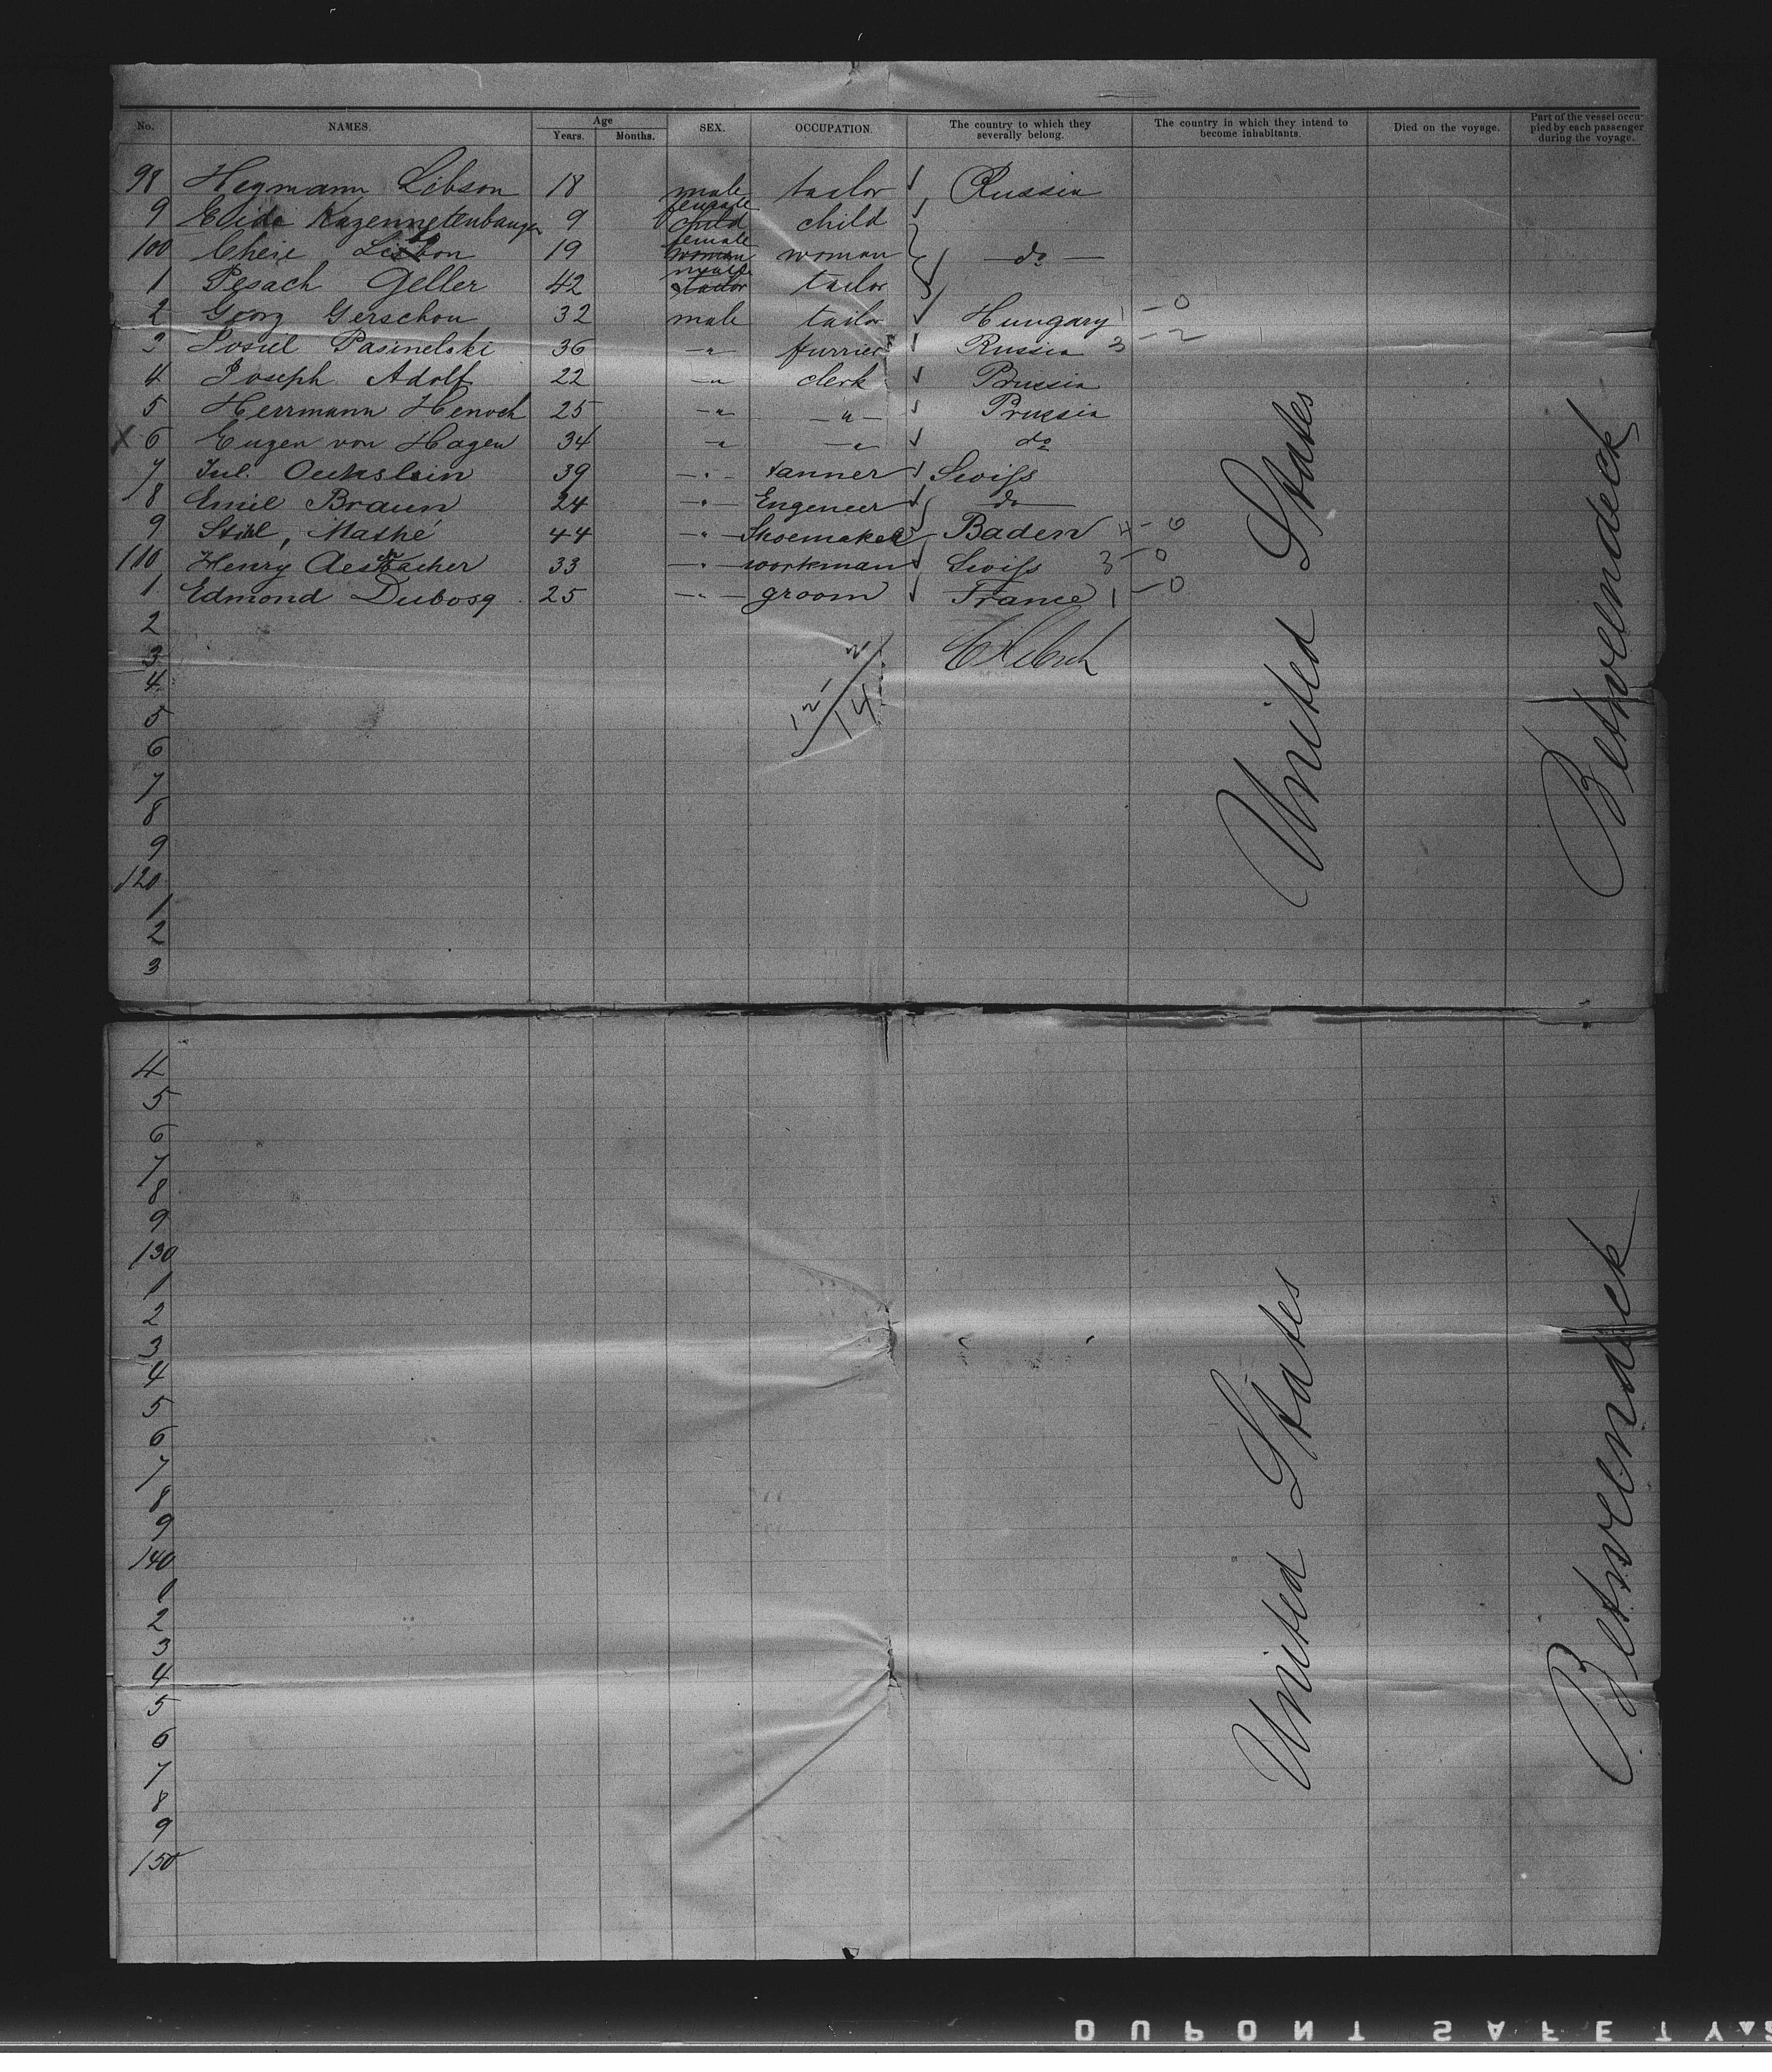 No. NAMES. Age Years. Months. SEX. OCCUPATION. The country to which they severally belong. The country in which they intend to become inhabitants. Died on the voyage. Part of the vessel occupied by each passenger during the voyage.
98 Heymann Libson 18 male tailor Russia
9 Elida 9 female child child
100 Cheie 19 female woman woman do
1 Pesach Geller 42 male tailor tailor
2 Georg Gerschon 32 male tailor Hungary 1-0
3 Josiel Pasinelski 36 " furrier Russia 3-2
4 Joseph Adolf 22 " clerk Prussia
5 Herrmann Henoch 25 " " Prussia
x 6 Eugen von Hagen 34 " " do
7 Jul. Oechslein 39 " tanner Swiss
8 Emil Braun 24 " Engeneer do
9 Stihl, Mathé 44 " Shoemaker Baden 4-0
110 Henry Aesbacher 33 " workman Swiss 3-0
1 Edmond Dubosq 25 " groom France 1-0
2
3
4
5
6
7
8
9
120
1
2
3
12/2
14
United States
Betweendeck
4
5
6
7
8
9
130
1
2
3
4
5
6
7
8
9
140
1
2
3
4
5
6
7
8
9
150
United States
Betweendeck
DUPONT SAFETY